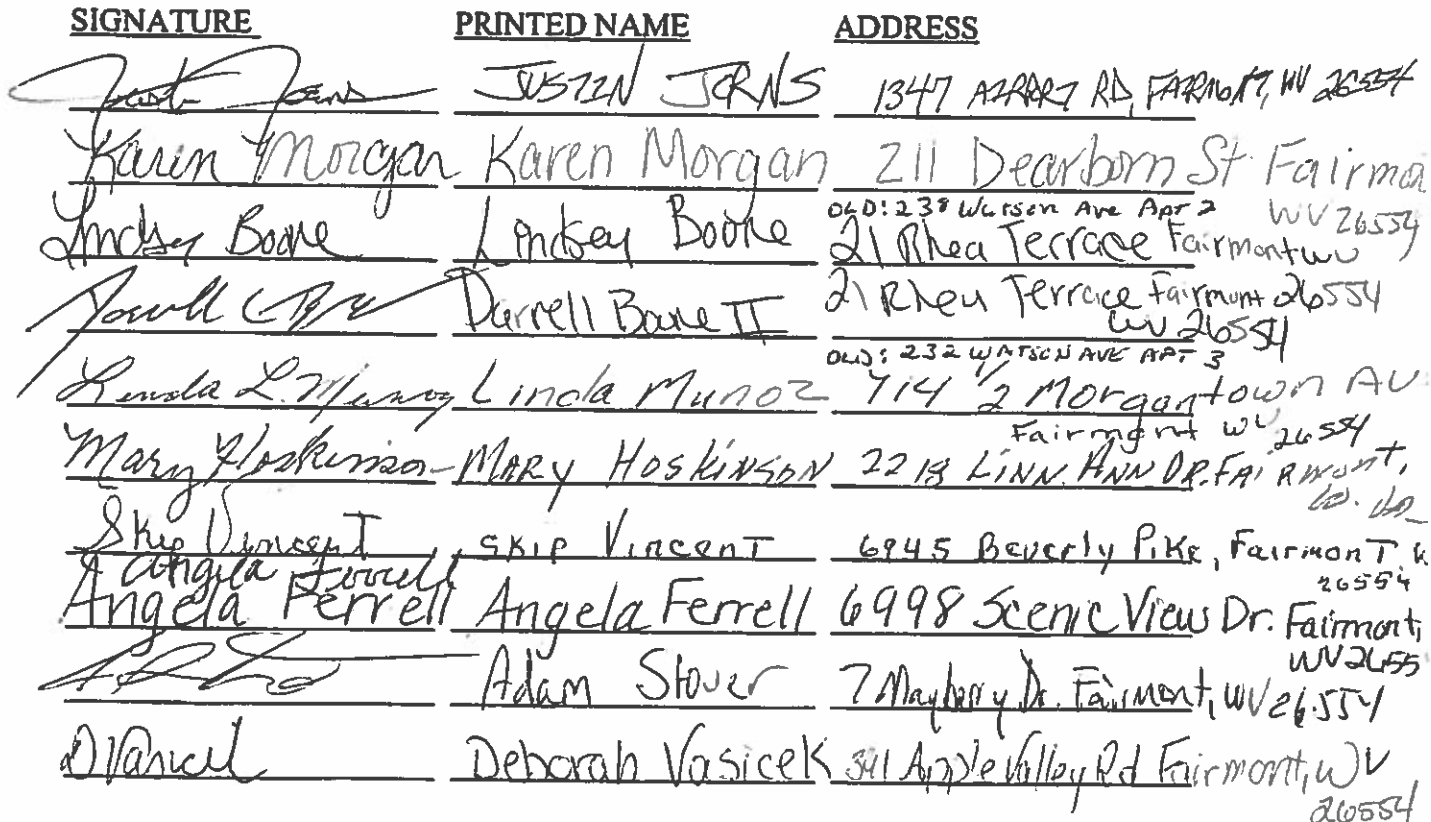 SIGNATURE PRINTED NAME ADDRESS
JUSTIN JORNS 1347 AIRPORT RD, FAIRMONT, WV 26554
Karen Morgan Karen Morgan 211 Dearborn St Fairmo
WV 26554
OLD: 238 Watson Ave APT 2
Lindsey Boone Lindsey Boone 21 Rhea Terrace Fairmont WV
26554
Darrell Boone II 21 Rhea Terrace Fairmont
WV 26554
OLD: 232 WATSON AVE APT 3
Linda L. Munoz Linda Munoz 714 1/2 Morgantown AV
Fairmont WV 26554
Mary Hoskinson MARY HOSKINSON 2213 LINN ANN DR. FAIRMONT,
Skip Vincent SKIP VincenT 6945 Beverly Pike, FairmonT
26554
Angela Ferrell
Angela Ferrell Angela Ferrell 6998 Scenic View Dr. Fairmont,
WV 2655
Adam Stover 7 Mayberry Dr. Fairmont, WV 26554
Deborah Vasicek 341 Apple Valley Rd Fairmont, WV
26554